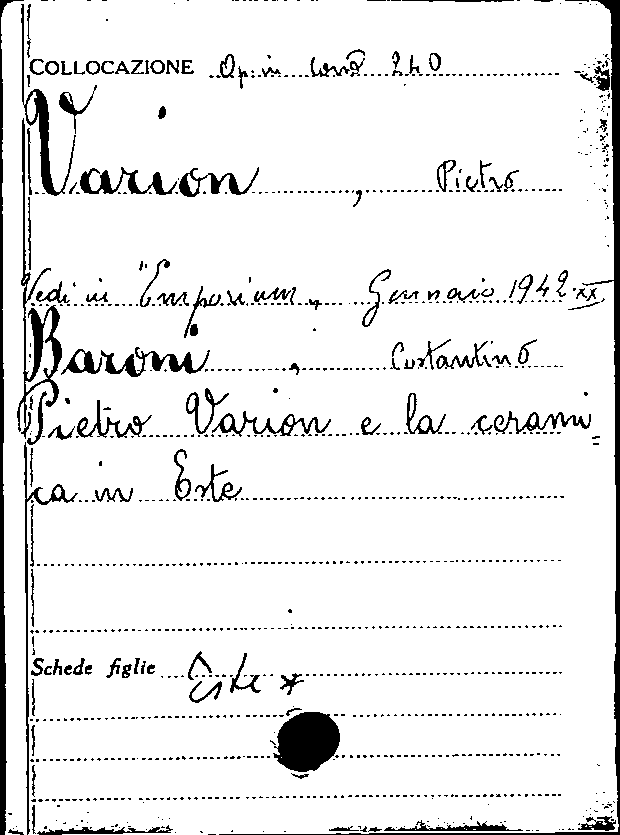 COLLOCAZIONE Op. in cons 240
Varion , Pietro
Vedi in "Emporium„ Gennaio 1942·XX
Baroni , Costantino
Pietro Varion e la cerami=
ca in Este
Schede figlie Este *